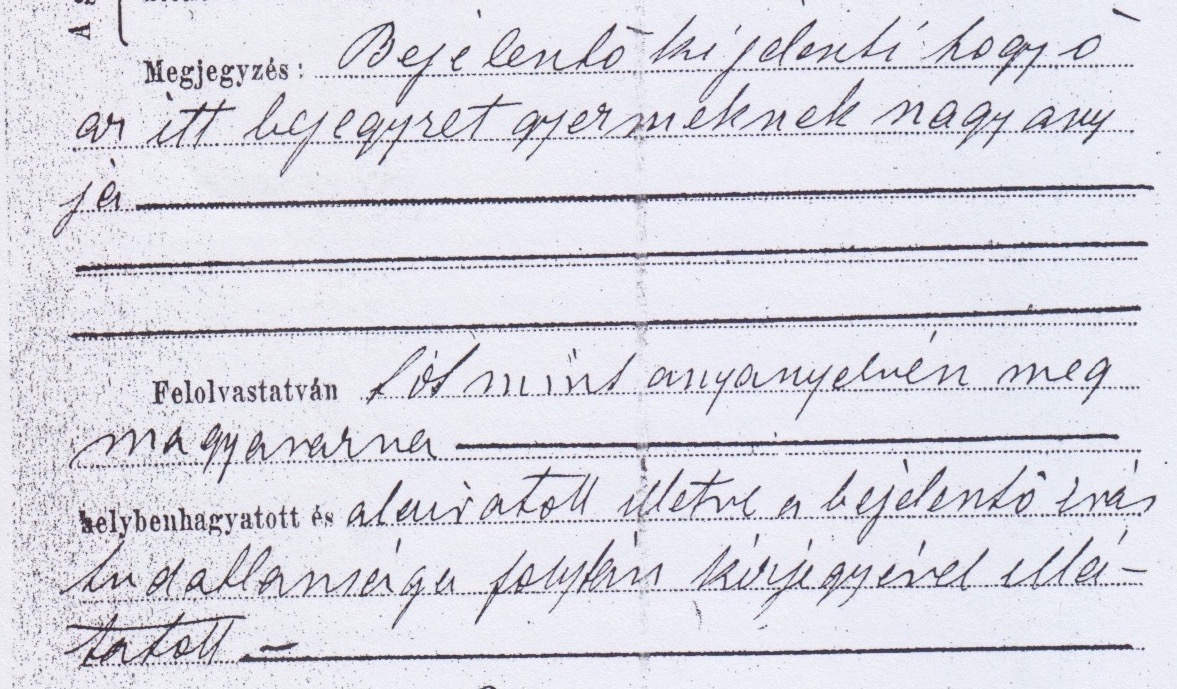 A
Megjegyzés: Bejelentő kijelenti hogy ő
az itt bejegyzet gyermeknek nagy any
ja
Felolvastatván tót mint anyanyelvén meg
magyarázva
helybenhagyatott és aláiratott illetve a bejelentő irás
tudatlansága folytán kézjegyével ellá-
tatott –